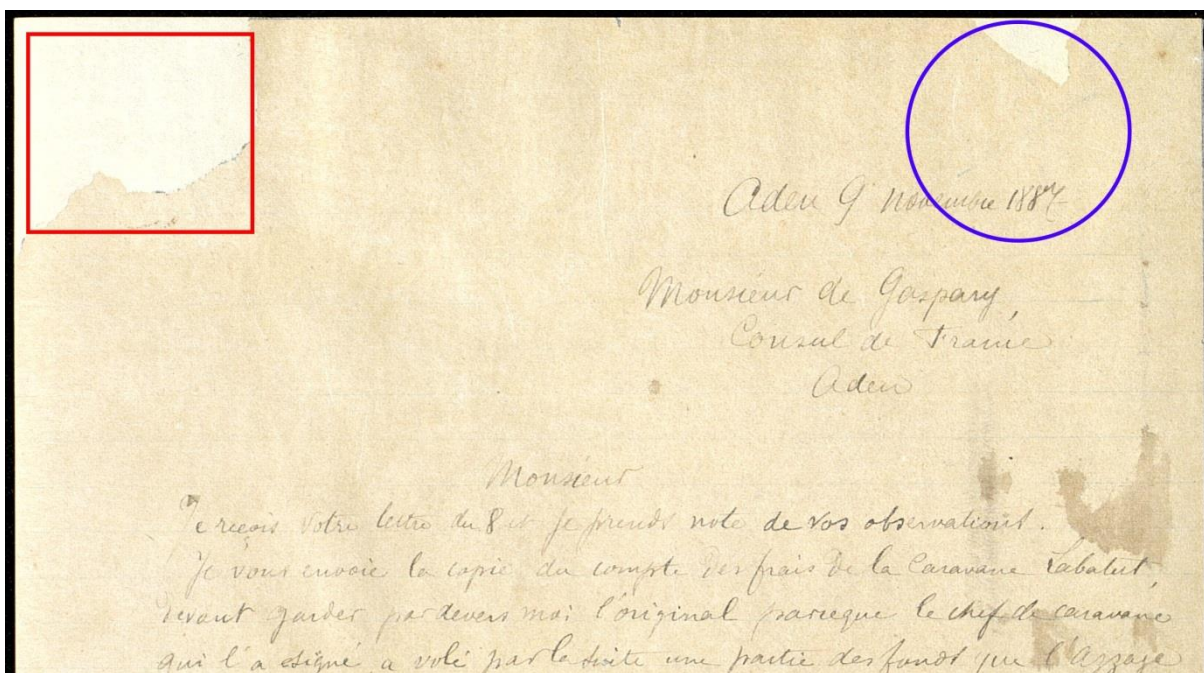 Aden 9 novembre 1887
Monsieur de Gaspary,
Consul de France
Aden
Monsieur
Je reçois votre lettre du 8 et je prends note de vos observations.
Je vous envoie la copie du compte des frais de la Caravane Labatut,
devant garder par devers moi l'original parceque le chef de caravane
qui l'a signé a volé par la suite une partie des fonds que l'Azzage